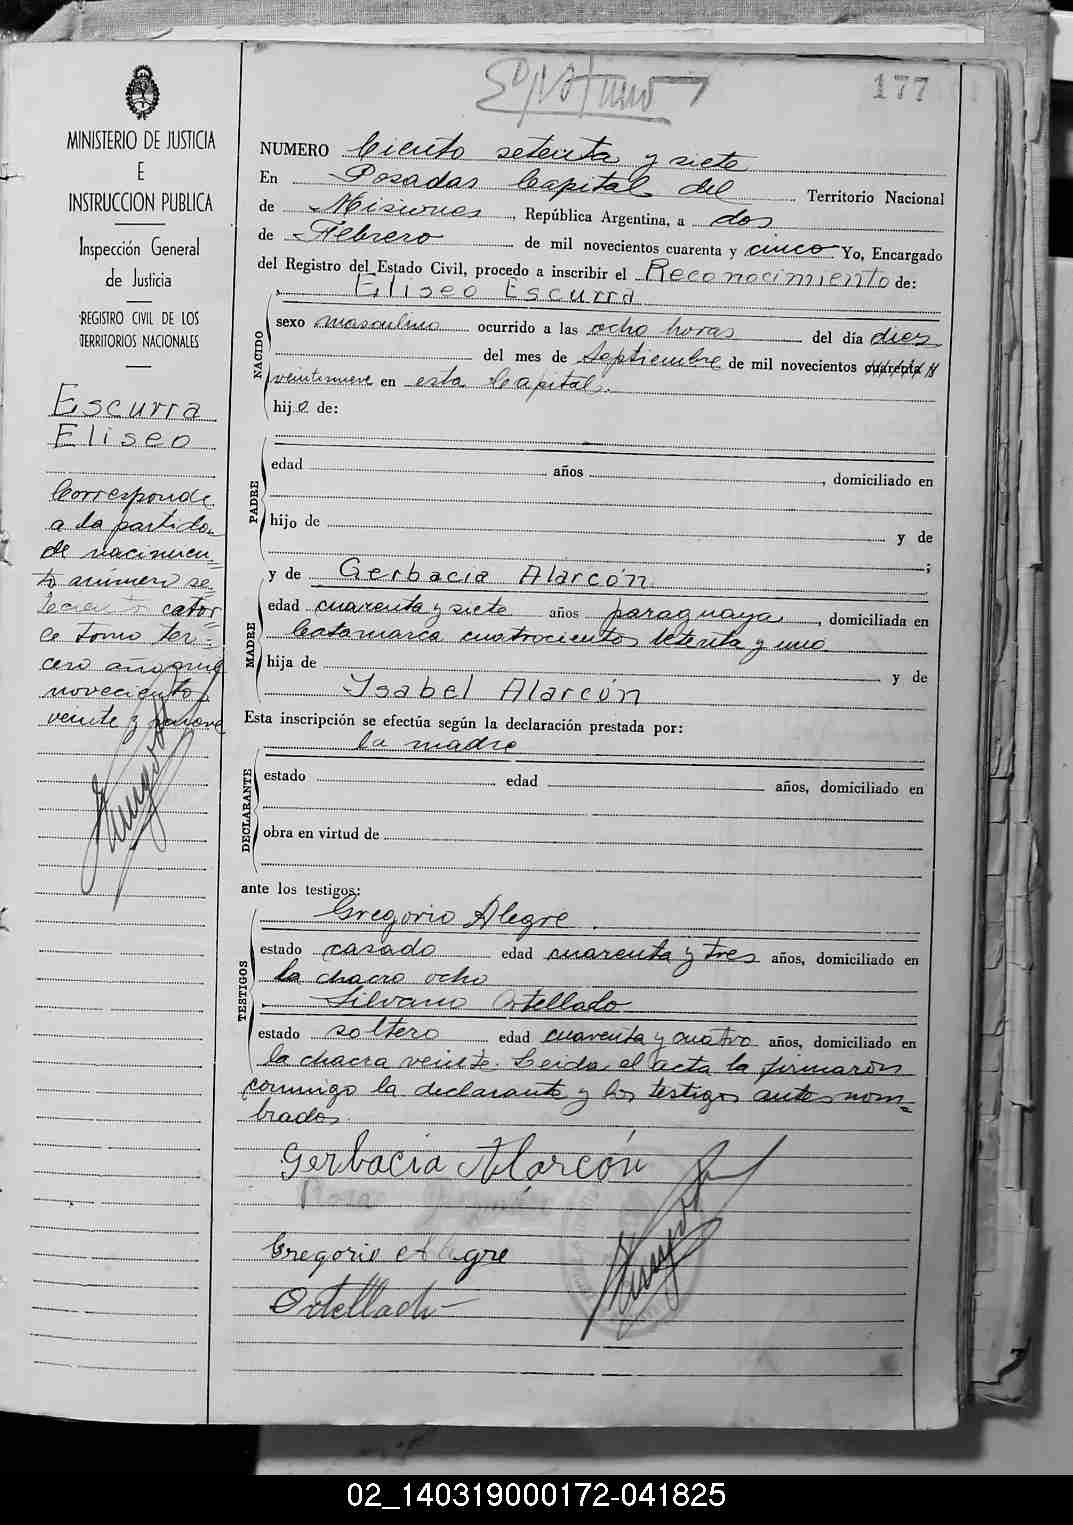 177
MINISTERIO DE JUSTICIA
E
INSTRUCCION PUBLICA
Inspección General
de Justicia
REGISTRO CIVIL DE LOS
TERRITORIOS NACIONALES
Escurra
Eliseo
Corresponde
a la partida
de nacimien-
to número se-
teciento cator-
ce tomo ter-
cero año mil
novecientos
veinte y nueve
NUMERO Ciento setenta y siete
En Posadas Capital del Territorio Nacional
de Misiones, República Argentina, a dos
de Febrero de mil novecientos cuarenta y cinco Yo, Encargado
del Registro del Estado Civil, procedo a inscribir el Reconocimiento de:
Eliseo Escurra
NACIDO
sexo masculino ocurrido a las ocho horas del día diez
del mes de Septiembre de mil novecientos cuarenta y
veintinueve en esta Capital.
hijo de:
PADRE
edad años , domiciliado en
hijo de y de
;
y de Gerbacia Alarcón
MADRE
edad cuarenta y siete años paraguaya, domiciliada en
Catamarca cuatrocientos setenta y uno
hija de y de
Ysabel Alarcón
Esta inscripción se efectúa según la declaración prestada por:
la madre
DECLARANTE
estado edad años, domiciliado en
obra en virtud de
ante los testigos:
TESTIGOS
Gregorio Alegre
estado casado edad cuarenta y tres años, domiciliado en
la chacra ocho
Silvano Ortellado
estado soltero edad cuarenta y cuatro años, domiciliado en
la chacra veinte. Leida el acta la firmaron
conmigo la declarante y los testigos antes nom-
brados
Gerbacia Alarcón
Gregorio Alegre
Ortellado
02_140319000172-041825